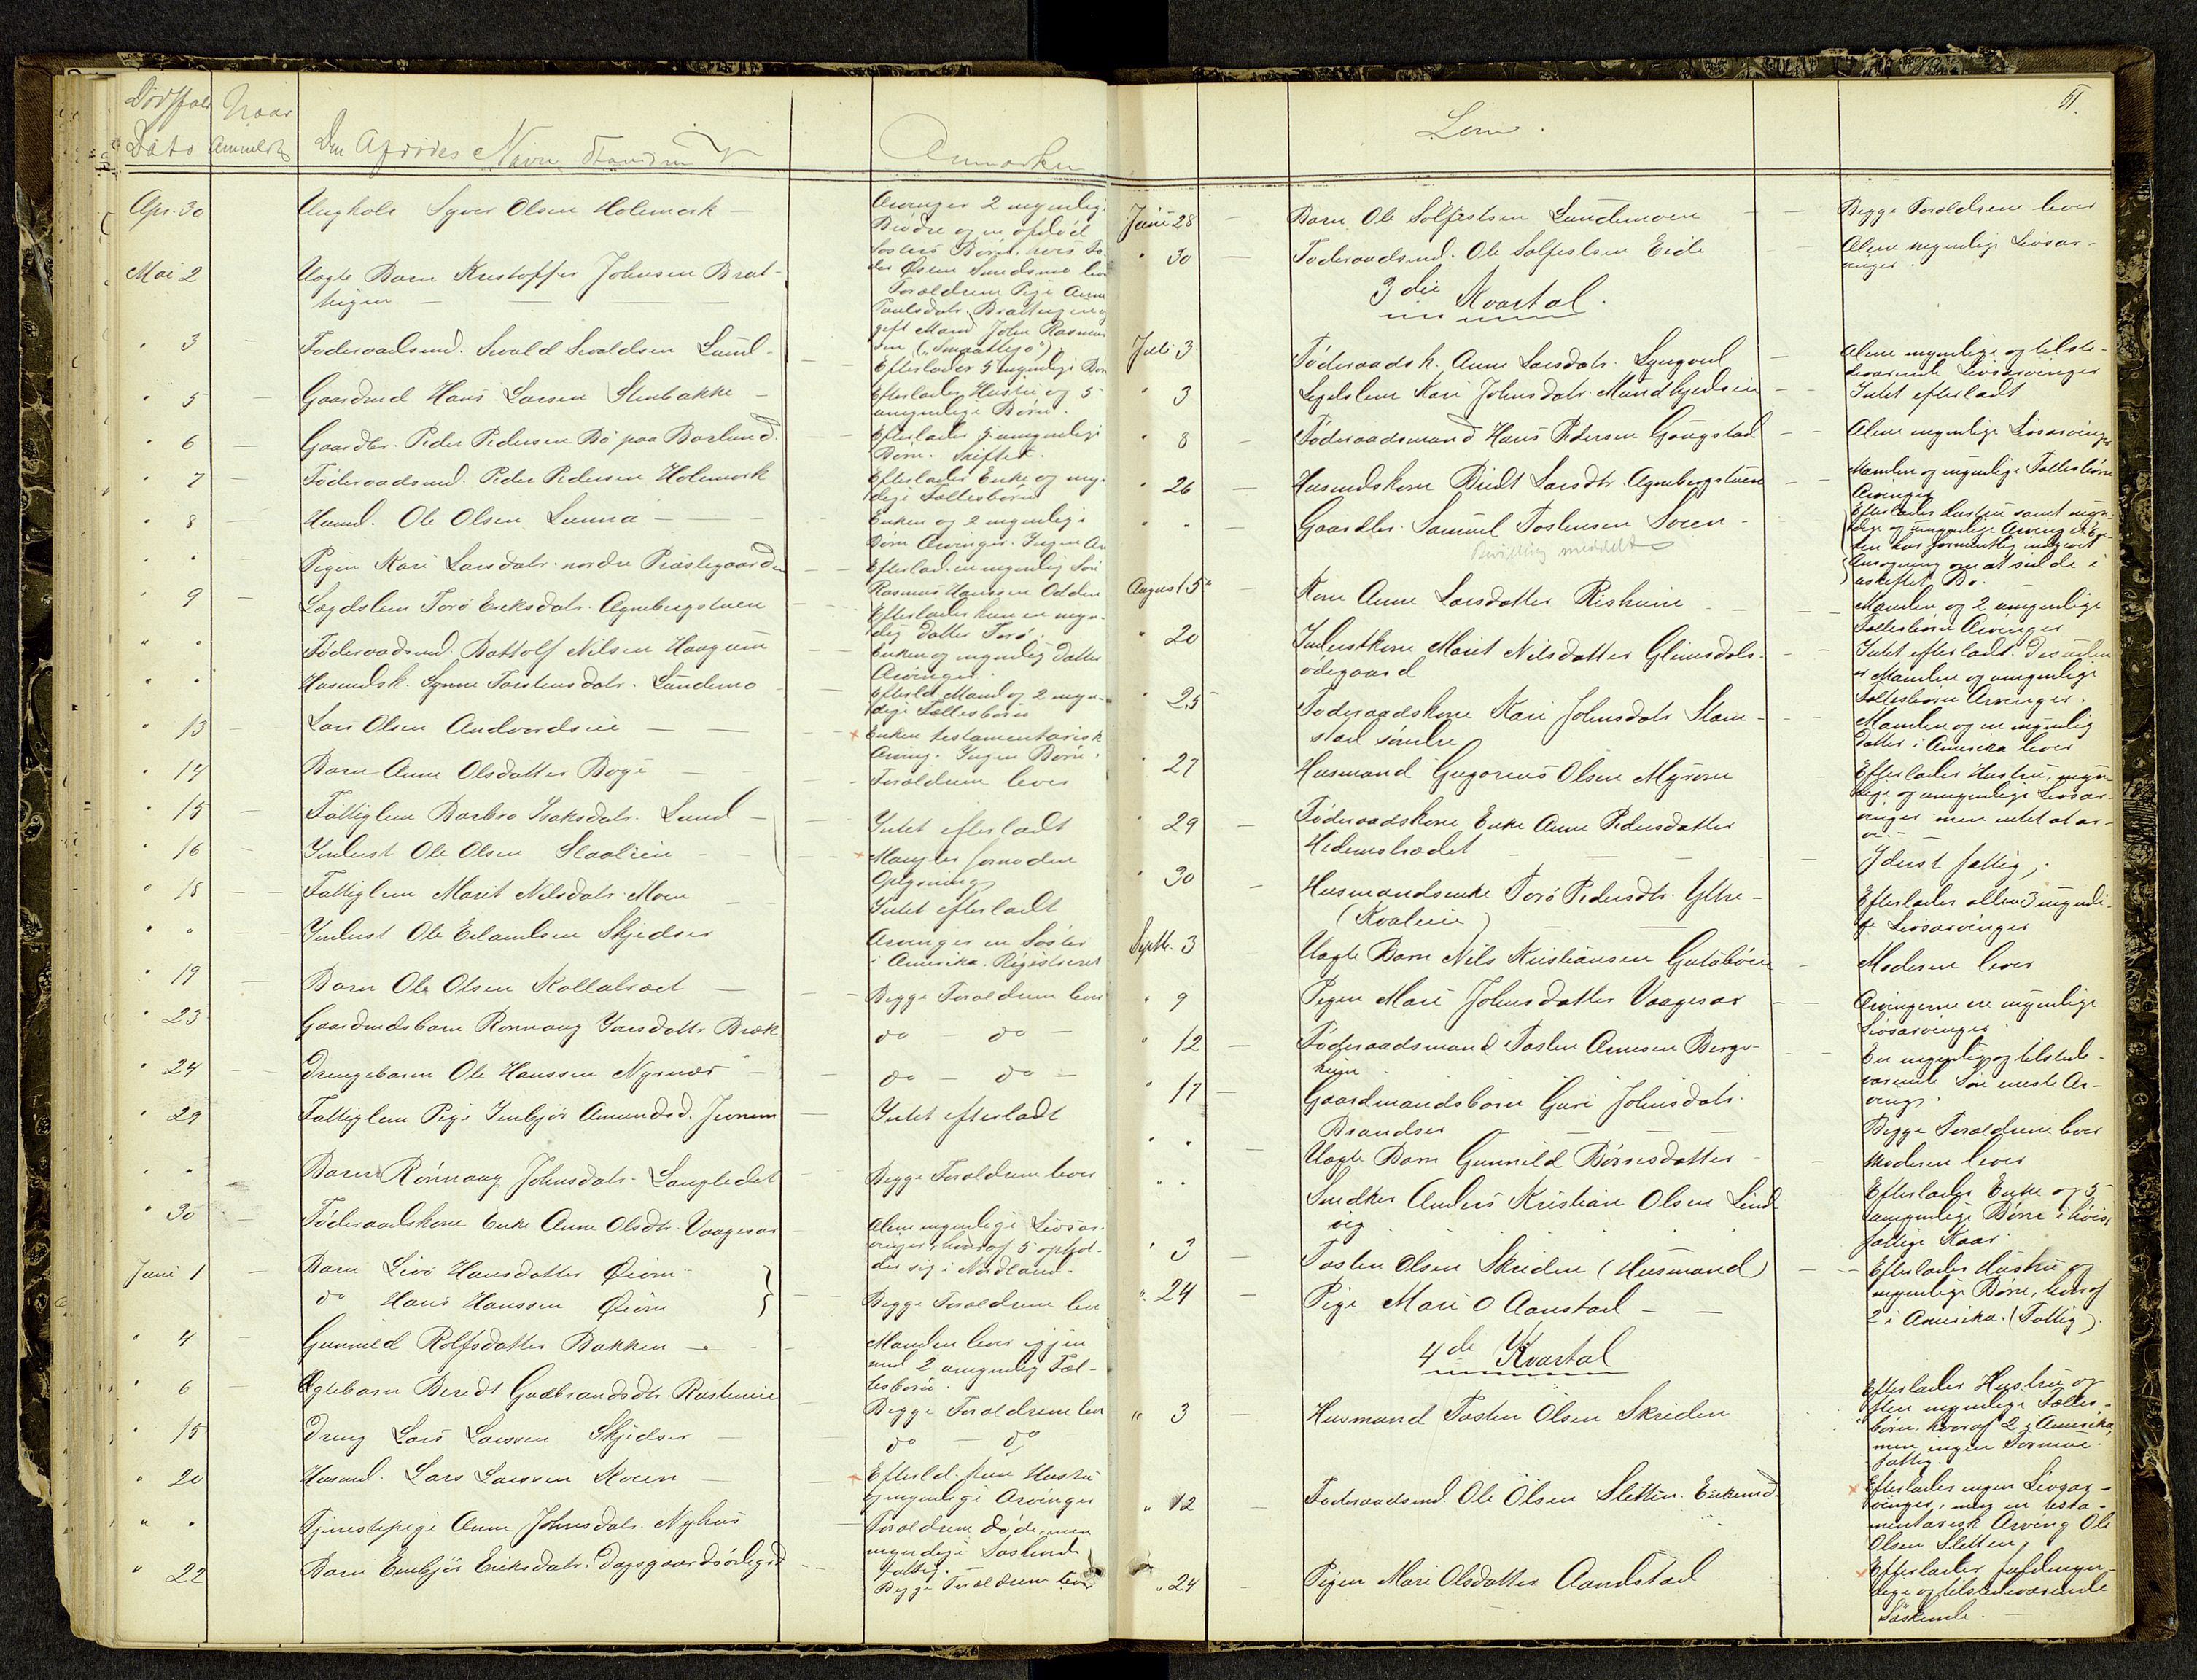 Dødsfald Naar
Dato Anmeldt Den Afdødes Navn Stand
Anmærkn
Apr. 30 Ungkarl Syver Olsen Holemork -
Arvinger 2 myndige
Brødre og en afdød
Søsters Børn, hvis Fa-
der Smedsmo lever
Mai 2 Uægte Barn Kristoffer Johnsen Brat-
tigen - -
Forældrene Pige Anne
Paulsdatr. Bratting og
gift Mand John Rasmus-
sen ("Smaatlejo")
" 3 - Føderaadsmd. Sevald Sevaldsen Lund -
Efterlader 5 myndige Børn
" 5 - Gaardmd Hans Larsen Stenbakke -
Efterlader Hustru og 5
umyndige Børn.
" 6 - Gaardbr. Peder Pedersen Bø paa Baglund.
Efterlader 5 umyndige
Børn. Skiftet.
" 7 - Føderaadsmd. Peder Pedersen Holemork
Efterlader Enke og myn-
dige Fællesbørn
" 8 - Husmd. Ole Olsen Lunna -
Enken og 2 myndige
Børn Arvinger. Ingen
" " Pigen Kari Larsdatr. nordre Præstegaarden
Efterlad. en myndig Søn
Rasmus Hanssen Odden
" 9 - Lægdslem Torø Eriksdatr. Agnebergstuen
Efterlader kun en myn-
dig Datter Torø.
" " Føderaadsmd. Battolf Nilsen Haagum
Enken og myndig Datter
Arvinger.
" " Husmdsk. Synne Torstensdatr. Sundemo
Efterld. Mand og 2 myn-
dige Fællesbørn
" 13 - Lars Olsen Andvordseie - -
Enken testamentarisk
Arving. Ingen Børn.
" 14 - Barn Anne Olsdatter Bøge -
Forældrene lever
" 15 - Fattiglem Barbro Isaksdatr. Lund -
Intet efterladt
" 16 - Inderst Ole Olsen Slaalien
Mangler fornøden
Oplysning
" 18 - Fattiglem Marit Nilsdatr. Moen
Intet efterladt
" " Inderst Ole Erlandsen Skjedser
Arvinger en Søster
i Amerika. Registreret
" 19 - Barn Ole Olsen Kollabræt -
Begge Forældrene lever
" 23 Gaardmdsbarn Rønnaug Ivarsdattr Bræk
do - do -
" 24 - Drengebarn Ole Hanssen Nysnæs -
do - do -
" 29 Fattiglem Pige Imbjør Amundsd. Jevnem
Intet efterladt
" " Barn Rønnaug Johnsdatr. Langledet
Begge Forældrene lever
" 30 - Føderaadskone Enke Anne Olsdtr. Vaagesar
Alene myndige Livsar-
vinger, hvoraf 5 ophol-
der sig i Nordland.
Juni 1 - Barn Livø Hansdatter Øiom
do Hans Hanssen Øiom
Begge Forældrene lever
" 4 Gunnild Rolfsdatter Bakken -
Manden lever igjen
med 2 umyndig Fæl-
lesbørn.
" 6 - Ægtebarn Beredt Gudbrandsdtr. Rusteneie
Begge Forældrene lever
" 15 Dreng Lars Larssen Skjedser -
do - do
" 20 Husmd. Lars Larssen Moen -
Efterld. kun Hustru
og myndige Arvinger
" " Tjenestepige Anne Johnsdatr. Nyhus
Forældrene døde, men
myndige Søskende
fattig.
" 22 Barn Embjør Eriksdatr. Dagsgaardsødegrd -
Begge Forældrene lever
Lom.
61.
Juni 28 - Barn Ole Solfestsen Sundemoen -
Begge Forældrene lever
" 30 - Føderaadsmd. Ole Solfestsen Eide
Alene myndige Livsar-
vinger.
3die Kvartal.
Juli 3. Føderaadsk. Anne Larsdatr. Lyngved
Alene myndige og tilste-
deværende Livsarvinger
" 3 Legdslem Kari Johnsdatr. Mundhjeldseie -
Intet efterladt
" 8 - Føderaadsmand Hans Pedersen Gaugstad
Alene myndige Livsarvinger
" 26 - Husmdskone Beredt Larsdtr. Agnebergstuen
Manden og myndige Fællesbørn
Arvinger
" " - Gaardbr. Samuel Tostensen Soeen -
Bevilling meddelt
Efterlader Hustru samt myn-
dige og umyndige Arvinger. En-
ken har formentlig indgivet
Ansøgning om at sidde i
uskiftet Bo.
August 5 Kone Anne Larsdatter Risheim -
Manden og 2 umyndige
Fællesbørn Arvinger
" 20 Inderstkone Marit Nilsdatter Glimsdals-
ødegaard
Intet efterladt. Desuden
er Manden og umyndige
Fællesbørn Arvinger.
" 25 Føderaadskone Kari Johnsdatr Slam-
stad søndre
Manden og en myndig
Datter i Amerika lever
" 27 Husmand Gregorius Olsen Myrom
Efterlader Hustru, myn-
dige og umyndige Livsar-
vinger men intet at ar-
ve. -
" 29 - Føderaadskone Enke Anne Pedersdatter
Hedemstrædet -
Yderst fattig.
" 30 - Husmandsenke Torø Pedersdtr. Ytre -
(Kvaleeie)
Efterlader alene 3 myndi-
ge Livsarvinger
Septbr. 3 Uægte Barn Nils Kristiansen Gutubøeie -
Moderen lever
" 9 Pigen Mari Johnsdatter Vaagesar -
Arvingerne ere myndige
Livsarvinger.
" 12 - Føderaadsmand Tosten Arnesen Berge-
heim
En myndig og tilstede-
værende Søn eneste Ar-
ving.
" 17 - Gaardmandsbarn Guri Johnsdatr.
Brandser -
Begge Forældrene lever
" " - Uægte Barn Gunnild Børresdatter -
Moderen lever
" " Snedker Anders Kristian Olsen Lind-
vig
Efterlader Enke og 5
umyndige Børn i høist
fattige Kaar.
" 3 - Tosten Olsen Skriden (Husmand) -
Efterlader Hustru og
myndige Børn, hvoraf
2 i Amerika. (Fattig).
" 24 - Pige Mari O Aanstad - -
4de Kvartal
" 3 - Husmand Tosten Olsen Skriden
Efterlader Hustru og
flere myndige Fælles-
børn, hvoraf 2 i Amerika,
men ingen Formue.
fattig.
" 12 - Føderaadsmd. Ole Olsen Sletten. Enkemd.
Efterlader ingen Livsar-
vinger, men en testa-
mentarisk Arving Ole
Olsen Sletten,
" 24 - Pigen Mari Olsdatter Aandstad
Efterlader fuldmyn-
dige og tilstedeværende
Søskende. -